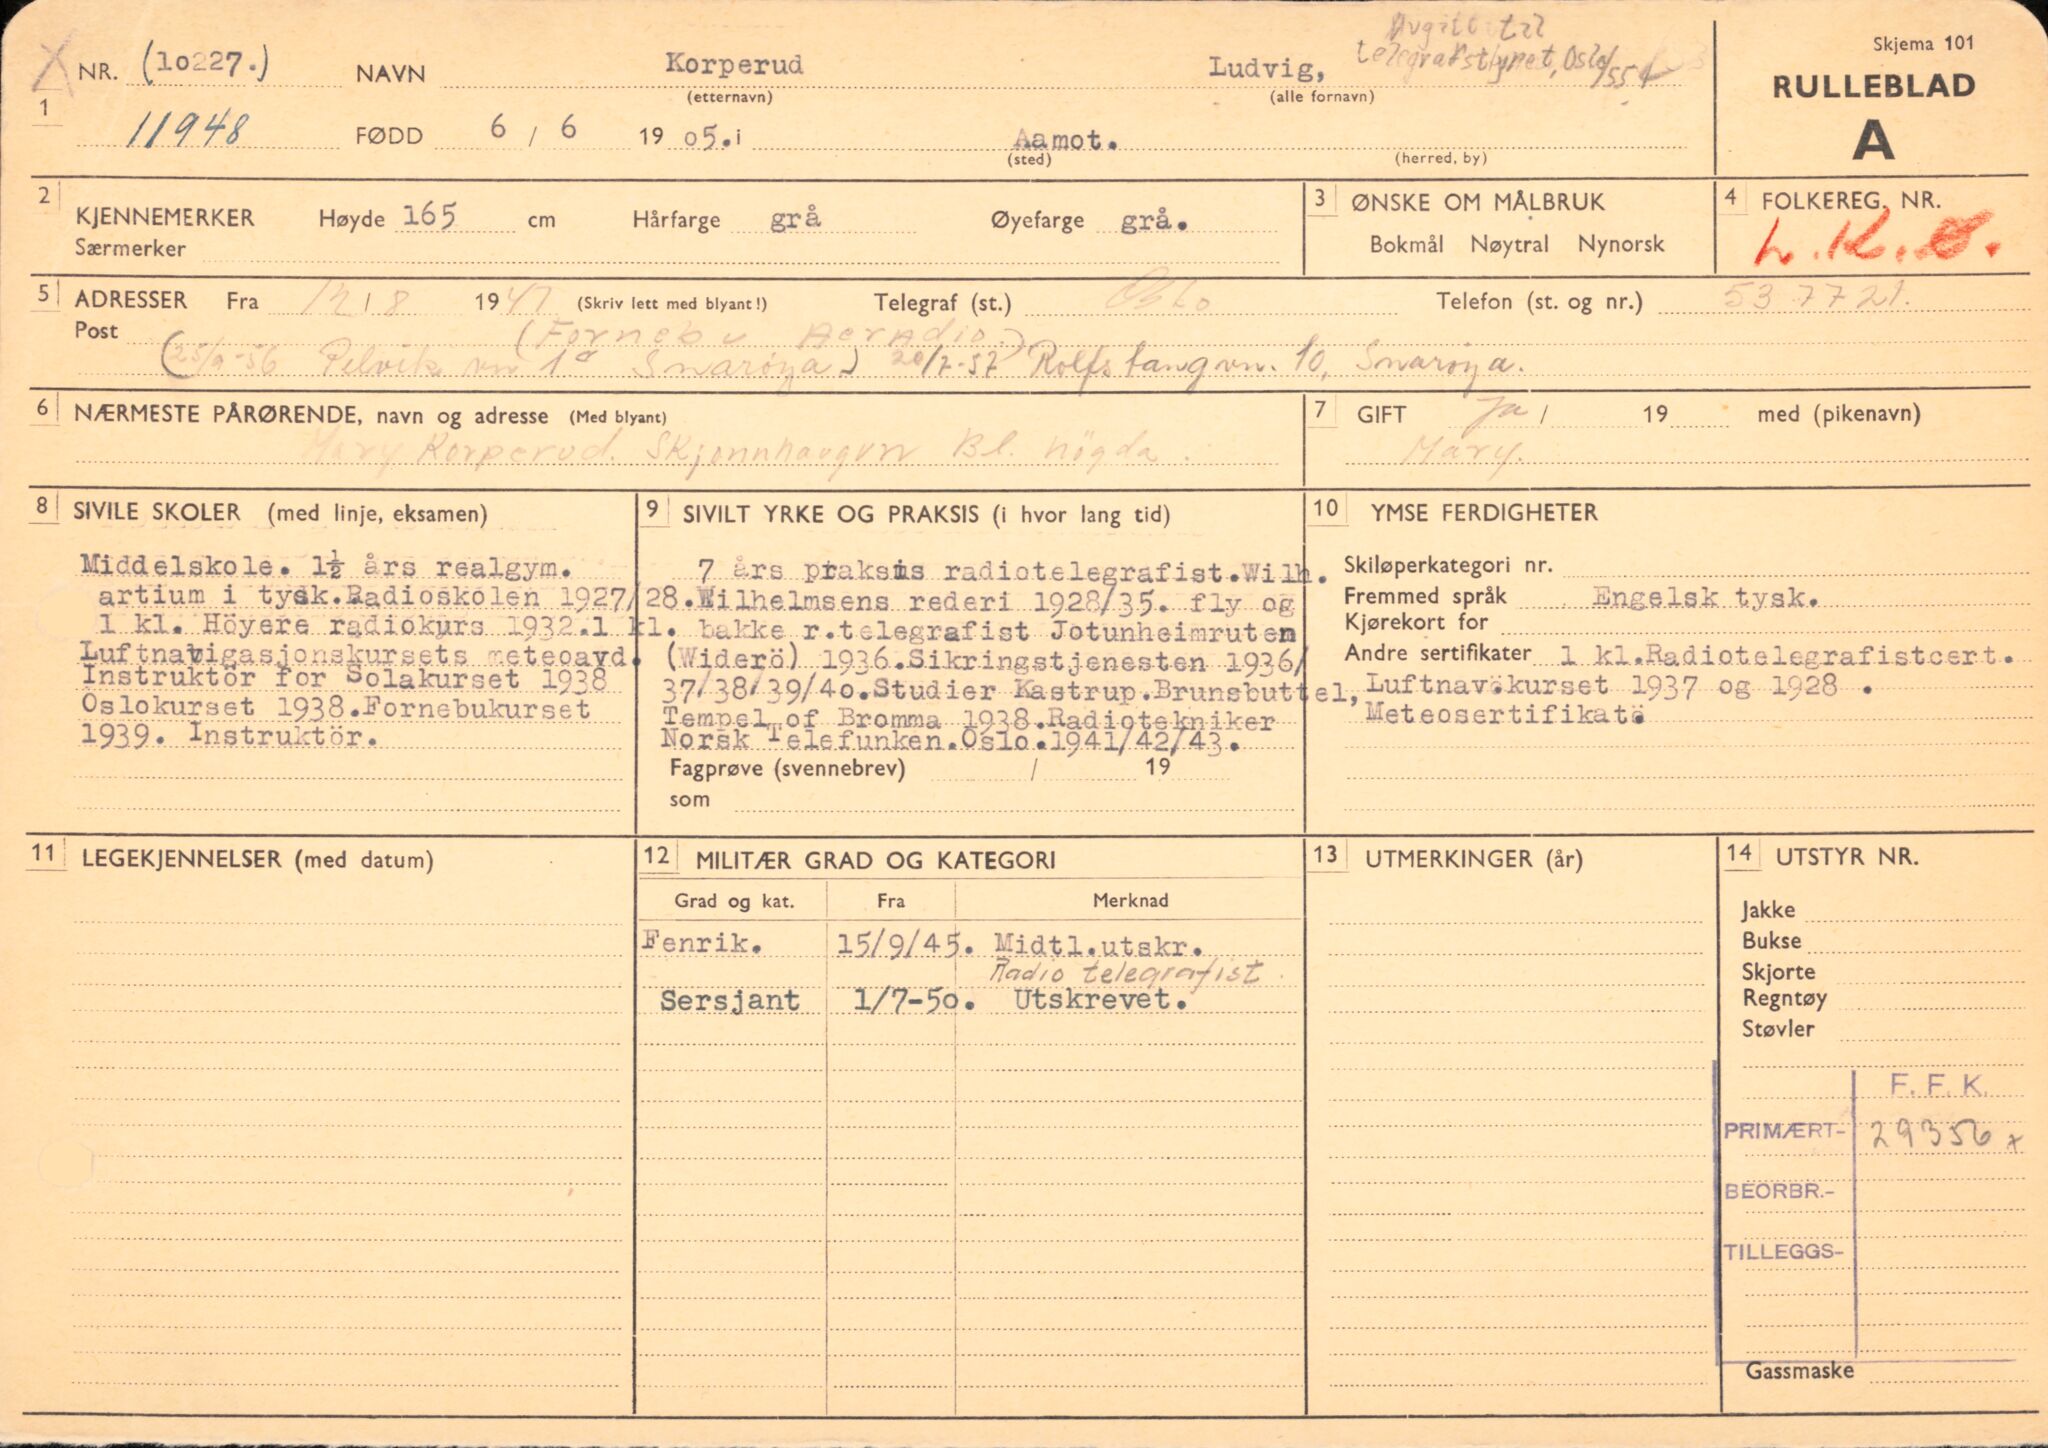 Avgitt til
telegrafstyret, Oslo/55
Skjema 101
RULLEBLAD
A
X NR. (10227.) NAVN Korperud Ludvig,
(etternavn) (alle fornavn)
1
11948 FØDD 6 / 6 1905. i Aamot.
(sted) (herred, by)
2 KJENNEMERKER Høyde 165 cm Hårfarge grå Øyefarge grå.
Særmerker
3 ØNSKE OM MÅLBRUK
Bokmål Nøytral Nynorsk
4 FOLKEREG. NR.
5 ADRESSER Fra 12/8 1947 (Skriv lett med blyant!) Telegraf (st.) Oslo Telefon (st. og nr.) 537721.
Post (Fornebu Aeradio.)
(25/9-56 Pelvikvn 1a Snarøya) 20/7-57 Rolfstangvn. 10, Snarøya.
6 NÆRMESTE PÅRØRENDE, navn og adresse (Med blyant)
Mary Korperud. Skjønnhaugvn Bl. högda.
7 GIFT Ja / 19 med (pikenavn)
Mary.
8 SIVILE SKOLER (med linje, eksamen)
Middelskole. 1½ års realgym.
artium i tysk.Radioskolen 1927/28.
1 kl. Höyere radiokurs 1932.1 kl.
Luftnavigasjonskursets meteoavd.
Instruktör for Solakurset 1938
Oslokurset 1938.Fornebukurset
1939. Instruktör.
9 SIVILT YRKE OG PRAKSIS (i hvor lang tid)
7 års praksis radiotelegrafist.Wilh.
Wilhelmsens rederi 1928/35. fly og
bakke r.telegrafist Jotunheimruten
(Widerö) 1936.Sikringstjenesten 1936/
37/38/39/40.Studier Kastrup.Brunsbuttel,
Tempel of Bromma 1938.Radiotekniker
Norsk Telefunken.Oslo.1941/42/43.
Fagprøve (svennebrev) / 19
som
10 YMSE FERDIGHETER
Skiløperkategori nr.
Fremmed språk Engelsk tysk.
Kjørekort for
Andre sertifikater 1 kl.Radiotelegrafistcert.
Luftnavökurset 1937 og 1928 .
Meteosertifikatö
11 LEGEKJENNELSER (med datum)
12 MILITÆR GRAD OG KATEGORI
Grad og kat. Fra Merknad
Fenrik. 15/9/45. Midtl.utskr.
Radio telegrafist.
Sersjant 1/7-50. Utskrevet.
13 UTMERKINGER (år)
14 UTSTYR NR.
Jakke
Bukse
Skjorte
Regntøy
Støvler
F. F. K.
PRIMÆRT- 29356 x
BEORBR.-
TILLEGGS-
Gassmaske